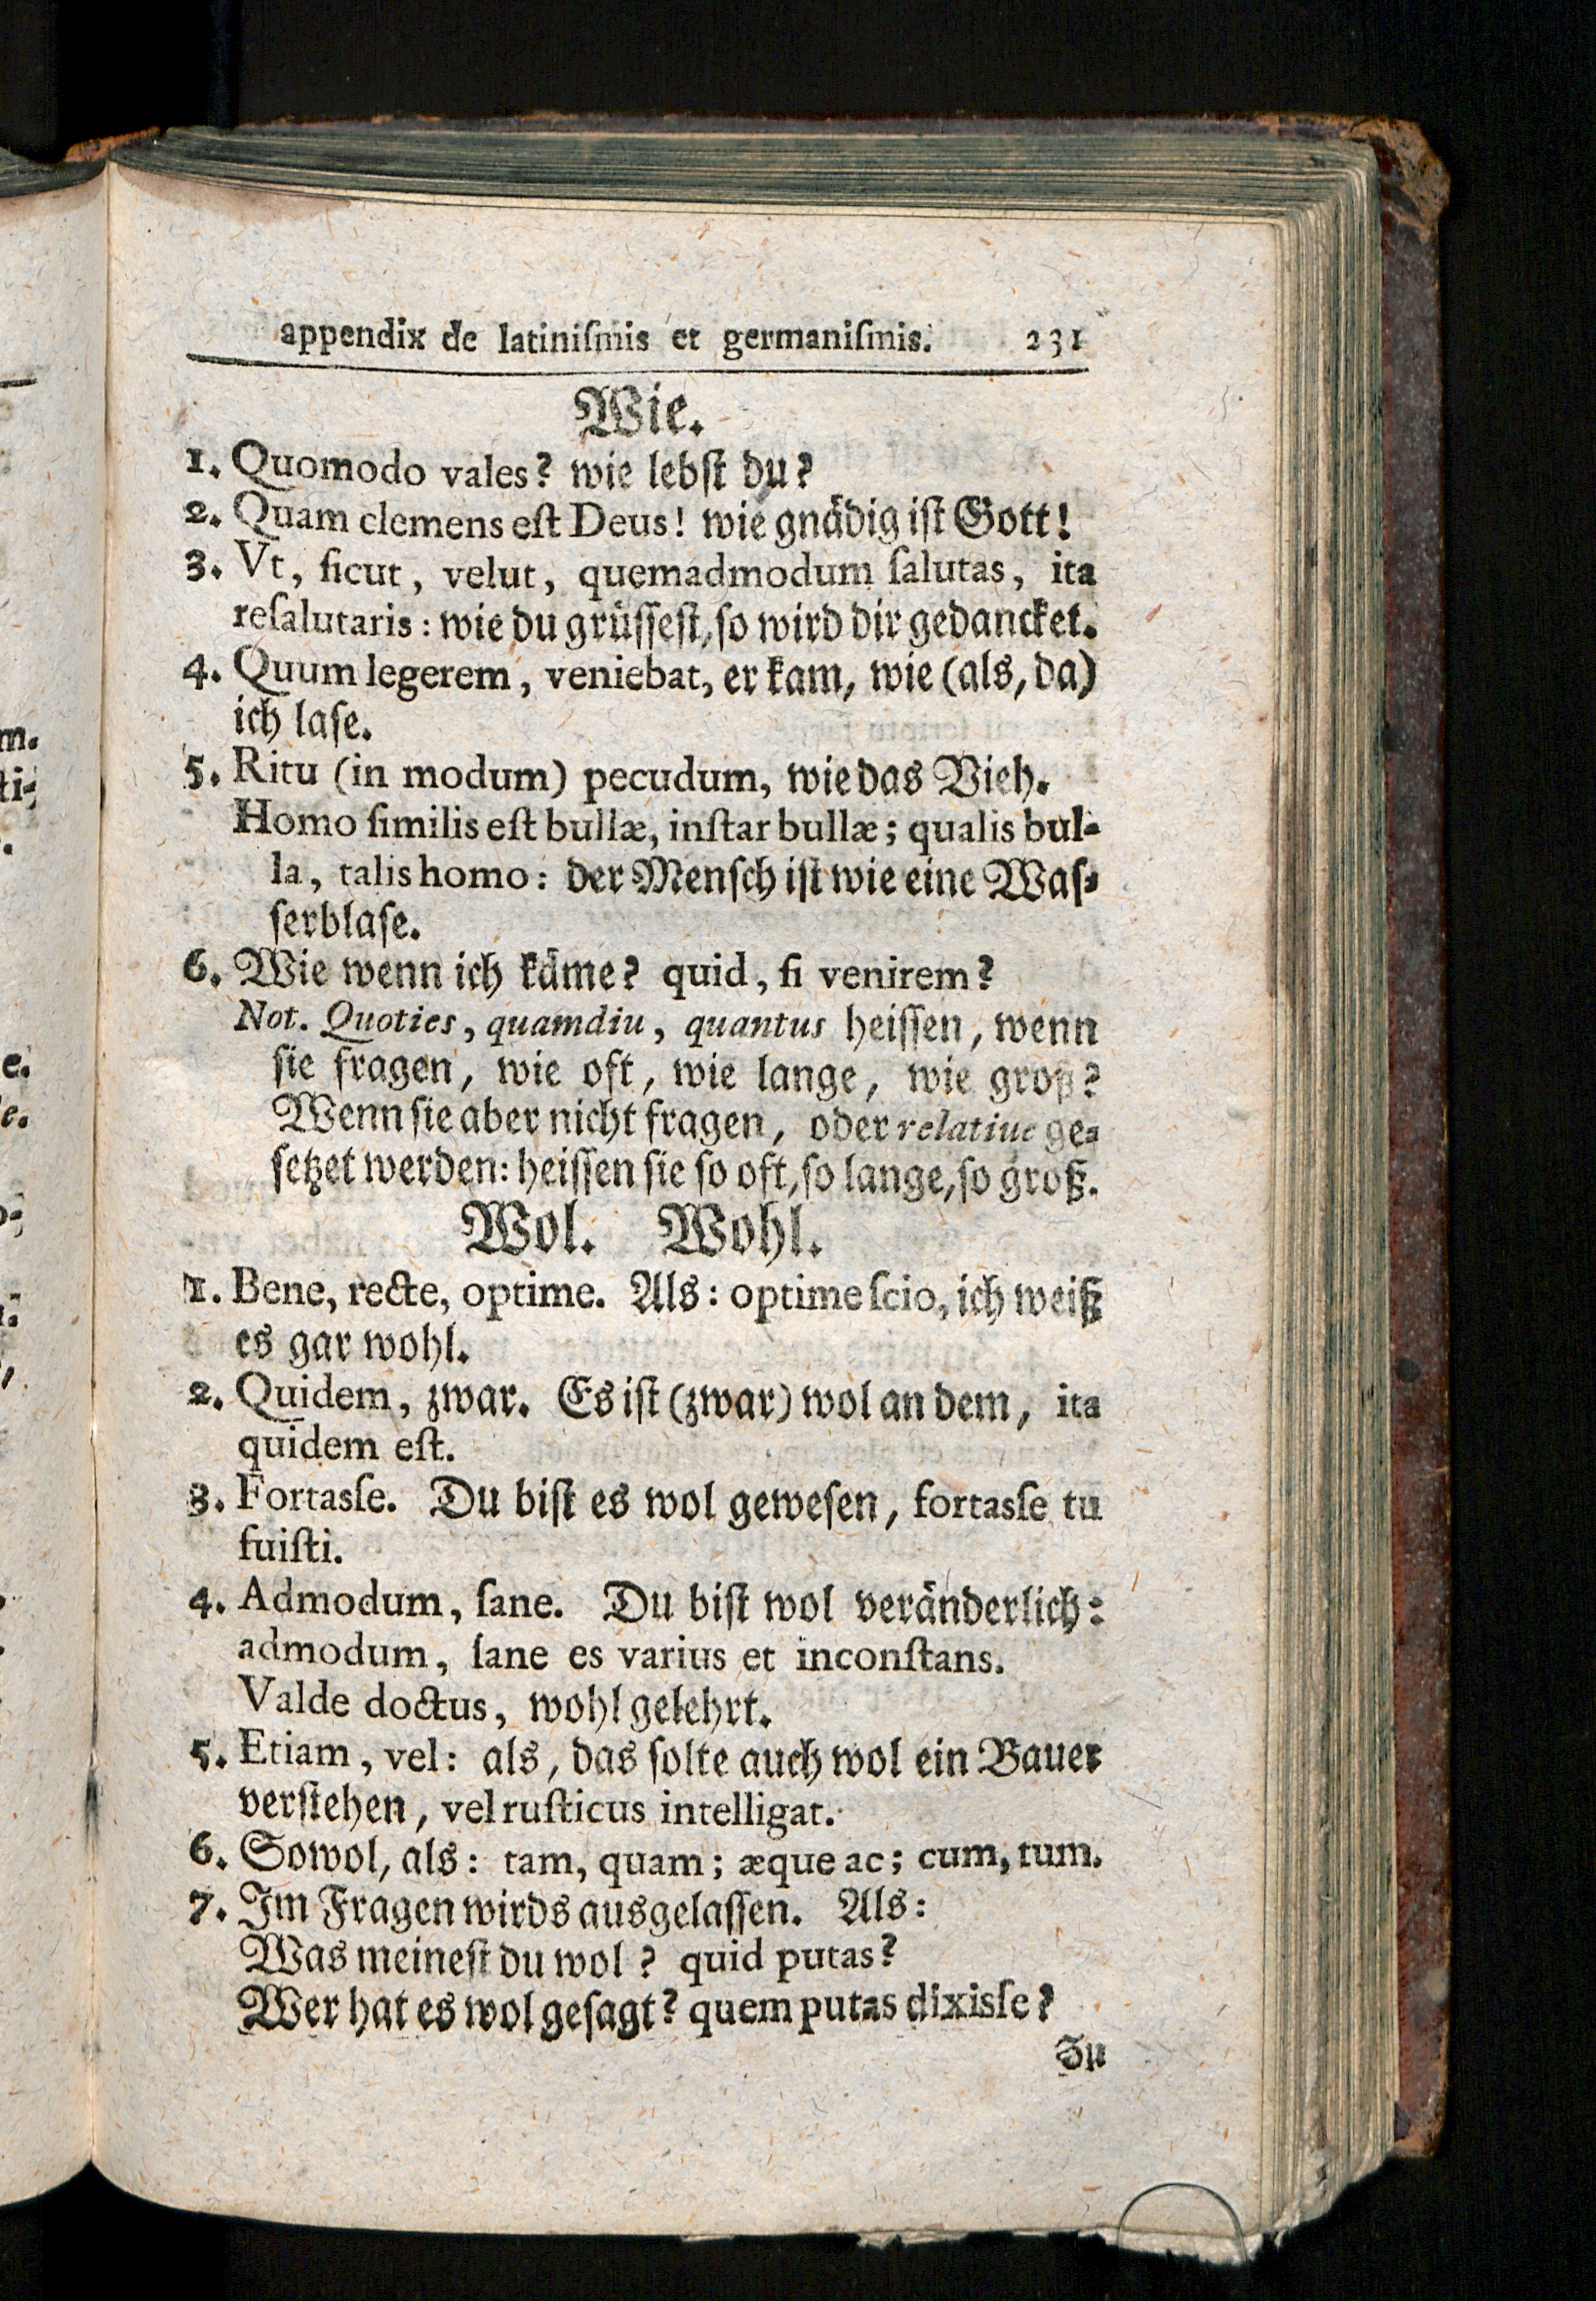 appendix de latiniſmis et germaniſmis. 231
Wie.
1. Quomodo vales? wie lebſt du?
2. Quam clemens eſt Deus! wie gnädig iſt Gott!
3. Vt, ſicut, velut, quemadmodum ſalutas, ita
reſalutaris: wie du grüſſeſt, ſo wird dir gedancket.
4. Quum legerem, veniebat, er kam, wie (als, da)
ich laſe.
5. Ritu (in modum) pecudum, wie das Vieh.
Homo ſimilis eſt bullæ, inſtar bullæ; qualis bul-
la, talis homo: der Menſch iſt wie eine Waſ-
ſerblaſe.
6. Wie wenn ich käme? quid, ſi venirem?
Not. Quoties, quamdiu, quantus heiſſen, wenn
ſie fragen, wie oft, wie lange, wie groß?
Wenn ſie aber nicht fragen, oder relatiue ge-
ſetzet werden: heiſſen ſie ſo oft, ſo lange, ſo groß.
Wol. Wohl.
1. Bene, recte, optime. Als: optime ſcio, ich weiß
es gar wohl.
2. Quidem, zwar. Es iſt (zwar) wol an dem, ita
quidem eſt.
3. Fortasſe. Du biſt es wol geweſen, fortasſe tu
fuiſti.
4. Admodum, ſane. Du biſt wol veränderlich:
admodum, ſane es varius et inconſtans.
Valde doctus, wohl gelehrt.
5. Etiam, vel: als, das ſolte auch wol ein Bauer
verſtehen, vel ruſticus intelligat.
6. Sowol, als: tam, quam; æque ac; cum, tum.
7. Im Fragen wirds ausgelaſſen. Als:
Was meineſt du wol? quid putas?
Wer hat es wol geſagt? quem putas dixisſe?
Zu